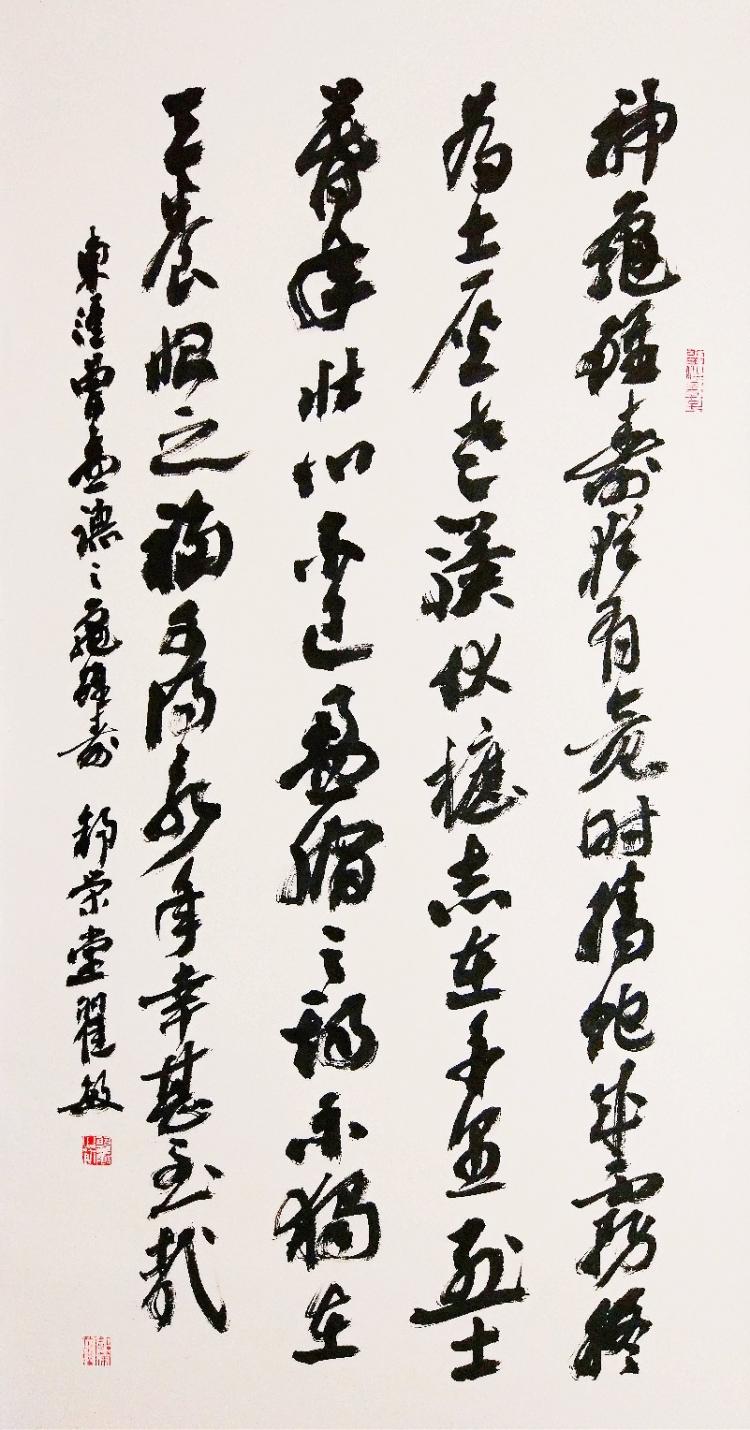 神龜雖壽猶有竟时騰蛇乘霧終
為土灰老驥伏櫪志在千里烈士
暮年壯心不已盈縮之期不獨在
天養怡之福可得永年幸甚至哉
東漢曹孟德之龜雖壽 靜榮堂翟敏